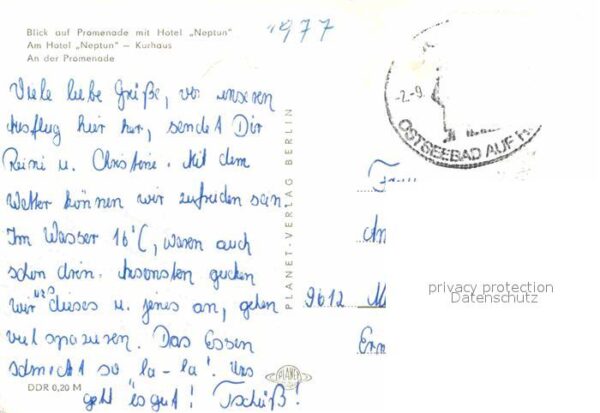 Blick auf Promenade mit Hotel „Neptun"
Am Hotel „Neptun" – Kurhaus
An der Promenade
1977
Viele liebe Grüße, von unseren
Ausflug hier her, sendet Dir
Reini u. Christine. Mit dem
Wetter können wir zufrieden sein
Im Wasser 16°C, waren auch
schon drin. Ansonsten gucken
wir uns dieses u. jenes an, gehen
viel spazieren. Das Essen
schmeckt so la-la! Uns
geht es gut! Tschüß!
PLANET-VERLAG BERLIN
PLANET
DDR 0,20 M
-2.-9.
OSTSEEBAD AUF
Fam
An
9612 M
privacy protection
Datenschutz